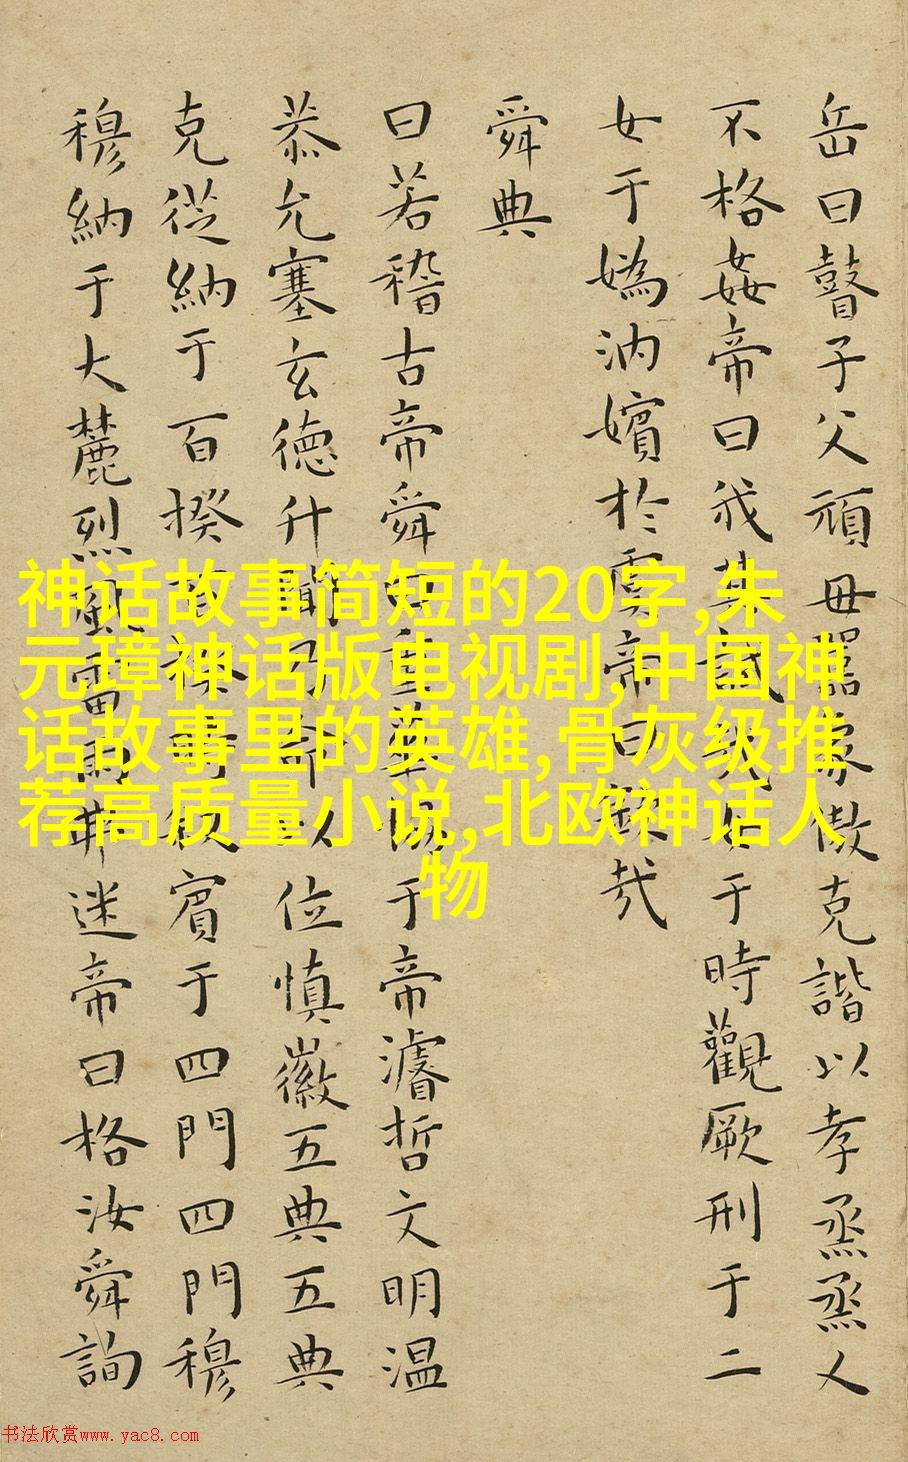 岳曰瞽子父頑毋嚚象傲克諧以孝烝烝乂
不格姦帝曰我其試哉女于時觀厥刑于二
女于嬀汭嬪於虞帝曰欽哉
舜典
曰若稽古帝舜曰重華協于帝濬哲文明温
恭允塞玄德升聞乃命以位慎徽五典五典
克從納于百揆百揆時敘賓于四門四門穆
穆納于大麓烈風雷雨弗迷帝曰格汝舜詢
神话故事简短的20字,朱
元璋神话版电视剧,中国神
话故事里的英雄,骨灰级推
荐高质量小说,北欧神话人
物
书法欣赏www.yac8.com